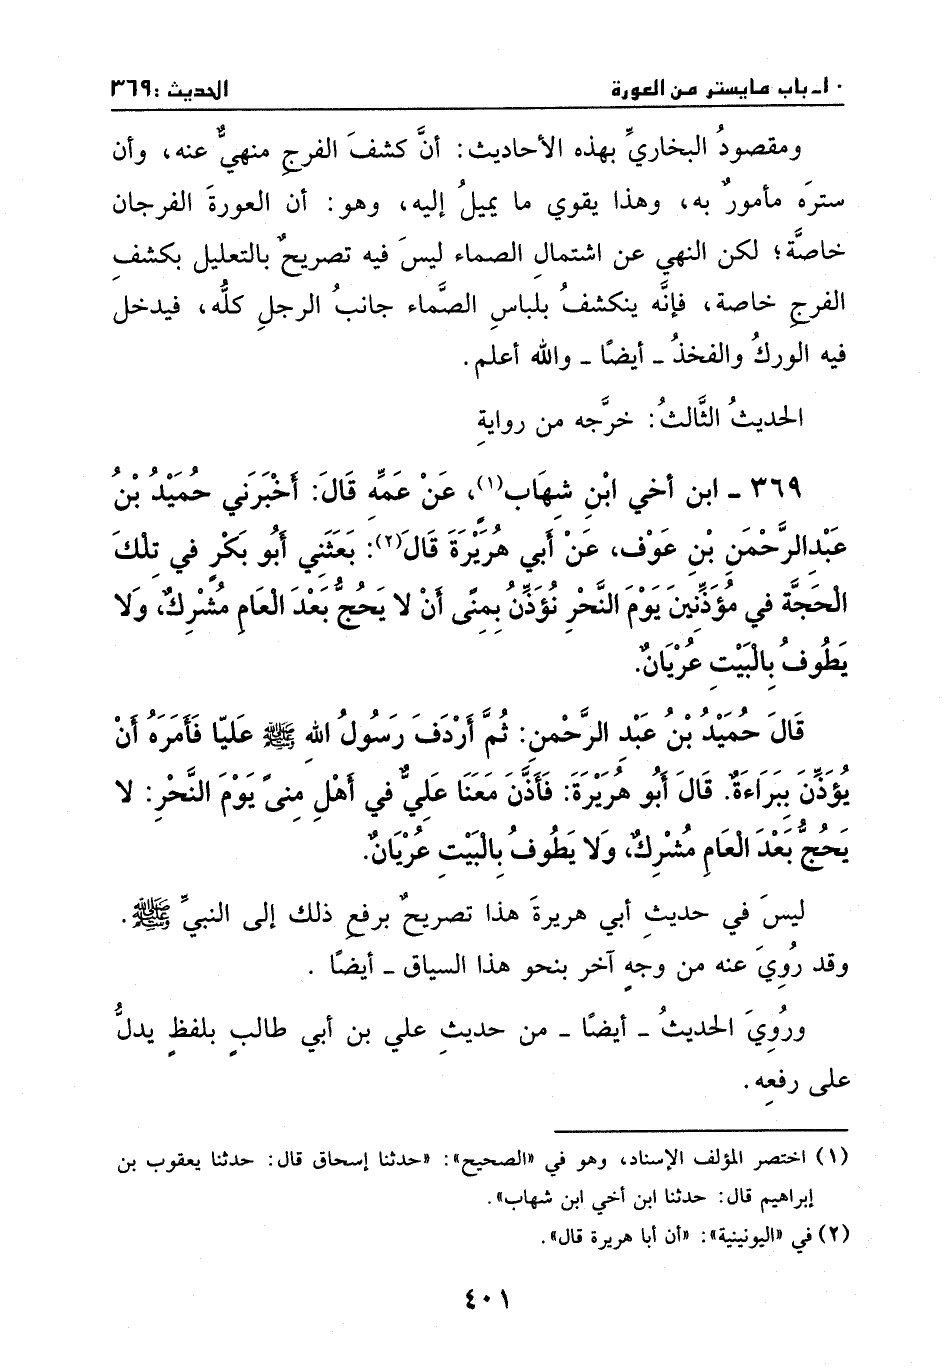 ١٠ـ باب مايستر من العورة
الحديث : ٣٦٩
ومقصودُ البخاريِّ بهذه الأحاديث: أنَّ كشفَ الفرجِ منهيٌّ عنه، وأن
سترَه مأمورٌ به، وهذا يقوي ما يميلُ إليه، وهو: أن العورةَ الفرجان
خاصَّة؛ لكن النهي عن اشتمالِ الصماء ليسَ فيه تصريحٌ بالتعليل بكشفِ
الفرجِ خاصة، فإنَّه ينكشفُ بلباسِ الصَّماء جانبُ الرجلِ كلُّه، فيدخل
فيه الوركُ والفخذُ ـ أيضًا ـ والله أعلم.
الحديثُ الثَّالثُ: خرَّجه من روايةِ
٣٦٩ ـ ابن أخي ابْنِ شِهَاب(١)، عَنْ عَمِّهِ قَالَ: أَخْبَرَني حُمَيْدُ بْنُ
عَبْدِالرَّحْمَنِ بْنِ عَوْفٍ، عَنْ أَبي هُرَيْرَةَ قَالَ(٢): بَعَثَنِي أَبُو بَكْرٍ في تِلْكَ
الْحَجَّة في مُؤَذِّنِينَ يَوْمَ النَّحْرِ نُؤَذِّنُ بِمِنًى أَنْ لا يَحُجَّ بَعْدَ الْعَامِ مُشْرِكٌ، وَلا
يَطُوفُ بِالْبَيْتِ عُرْيَانٌ.
قَالَ حُمَيْدُ بْنُ عَبْدِ الرَّحْمنِ: ثُمَّ أَرْدَفَ رَسُولُ اللهِ ﷺ عَلَيّا فَأَمَرَهُ أَنْ
يُؤَذِّنَ بِبَرَاءَةٌ. قَالَ أَبُو هُرَيْرَةَ: فَأَذَّنَ مَعَنَا عَلِيٌّ في أَهْلِ مِنىً يَوْمَ النَّحْرِ: لا
يَحُجُّ بَعْدَ الْعَامِ مُشْرِكٌ، وَلا يَطُوفُ بِالْبَيْتِ عُرْيَانٌ.
ليسَ في حديثِ أبي هريرةَ هذا تصريحٌ برفعِ ذلك إلى النبيِّ ﷺ.
وقد رُوِيَ عنه من وجهٍ آخر بنحو هذا السياق ـ أيضًا .
ورُوِيَ الحديثُ ـ أيضًا ـ من حديثِ علي بن أبي طالبٍ بلفظٍ يدلُّ
على رفعِه .
(١) اختصر المؤلف الإسناد، وهو في «الصحيح»: «حدثنا إسحاق قال: حدثنا يعقوب بن
إبراهيم قال: حدثنا ابن أخي ابن شهاب».
(٢) في «اليونينية»: «أن أبا هريرة قال».
٤٠١